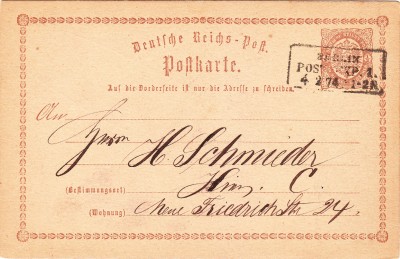 Deutsche Reichs-Post.
Postkarte.
BERLIN
POST EXP. 1.
4 2 74 1-2N.
Auf die Vorderseite ist nur die Adresse zu schreiben.
An
Herrn H Schmieder
Hier, C.
(Bestimmungsort)
(Wohnung) Neue Friedrich Str 24.